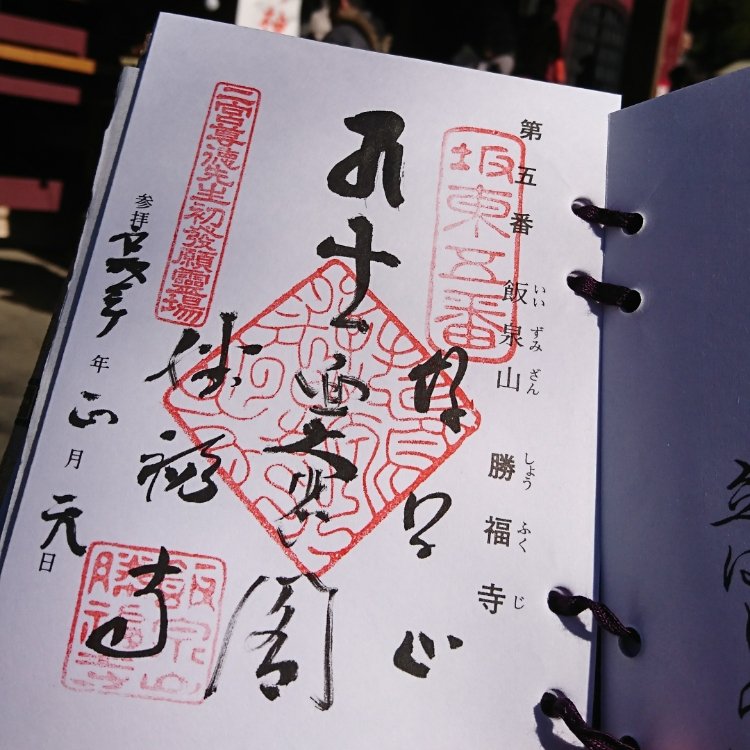 第五番 飯泉山 勝福寺
いいずみざん しょうふくじ
坂東五番
十一面大悲閣
勝福寺
二宮尊徳先生初發願靈場
飯泉山勝福寺
参拝 年 正月 元日